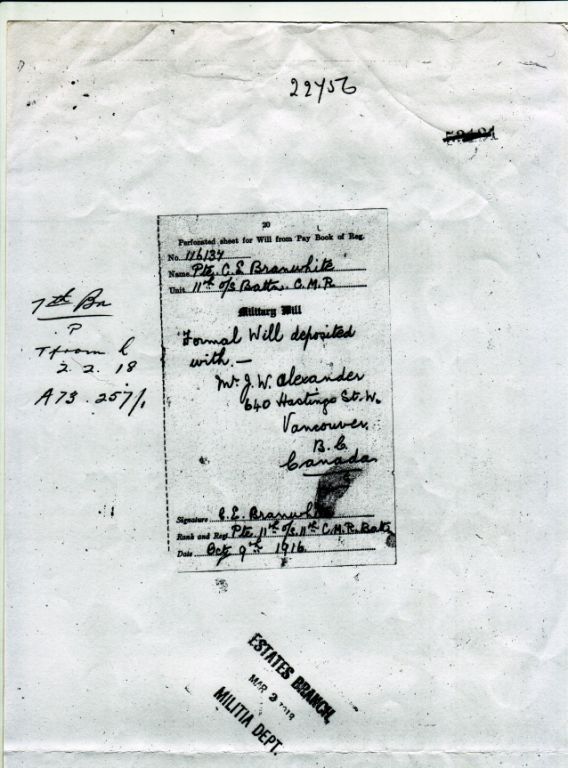 22456
20
Perforated sheet for Will from Pay Book of Reg.
No. 116134
Name Pte. C. E. Branwhite
Unit 11th O/S Battn. C.M.R.
Military Will
Formal Will deposited
with. —
Mr. J. W. Alexander
640 Hastings St. W.
Vancouver,
B.C.
Canada
Signature C. E. Branwhite
Rank and Regt Pte. 11th O/S. 11th C.M.R. Battn
Date Oct 9th 1916.
7th Bn
P
2. 2. 18
A73. 257/1
ESTATES BRANCH,
MAR
MILITIA DEPT.